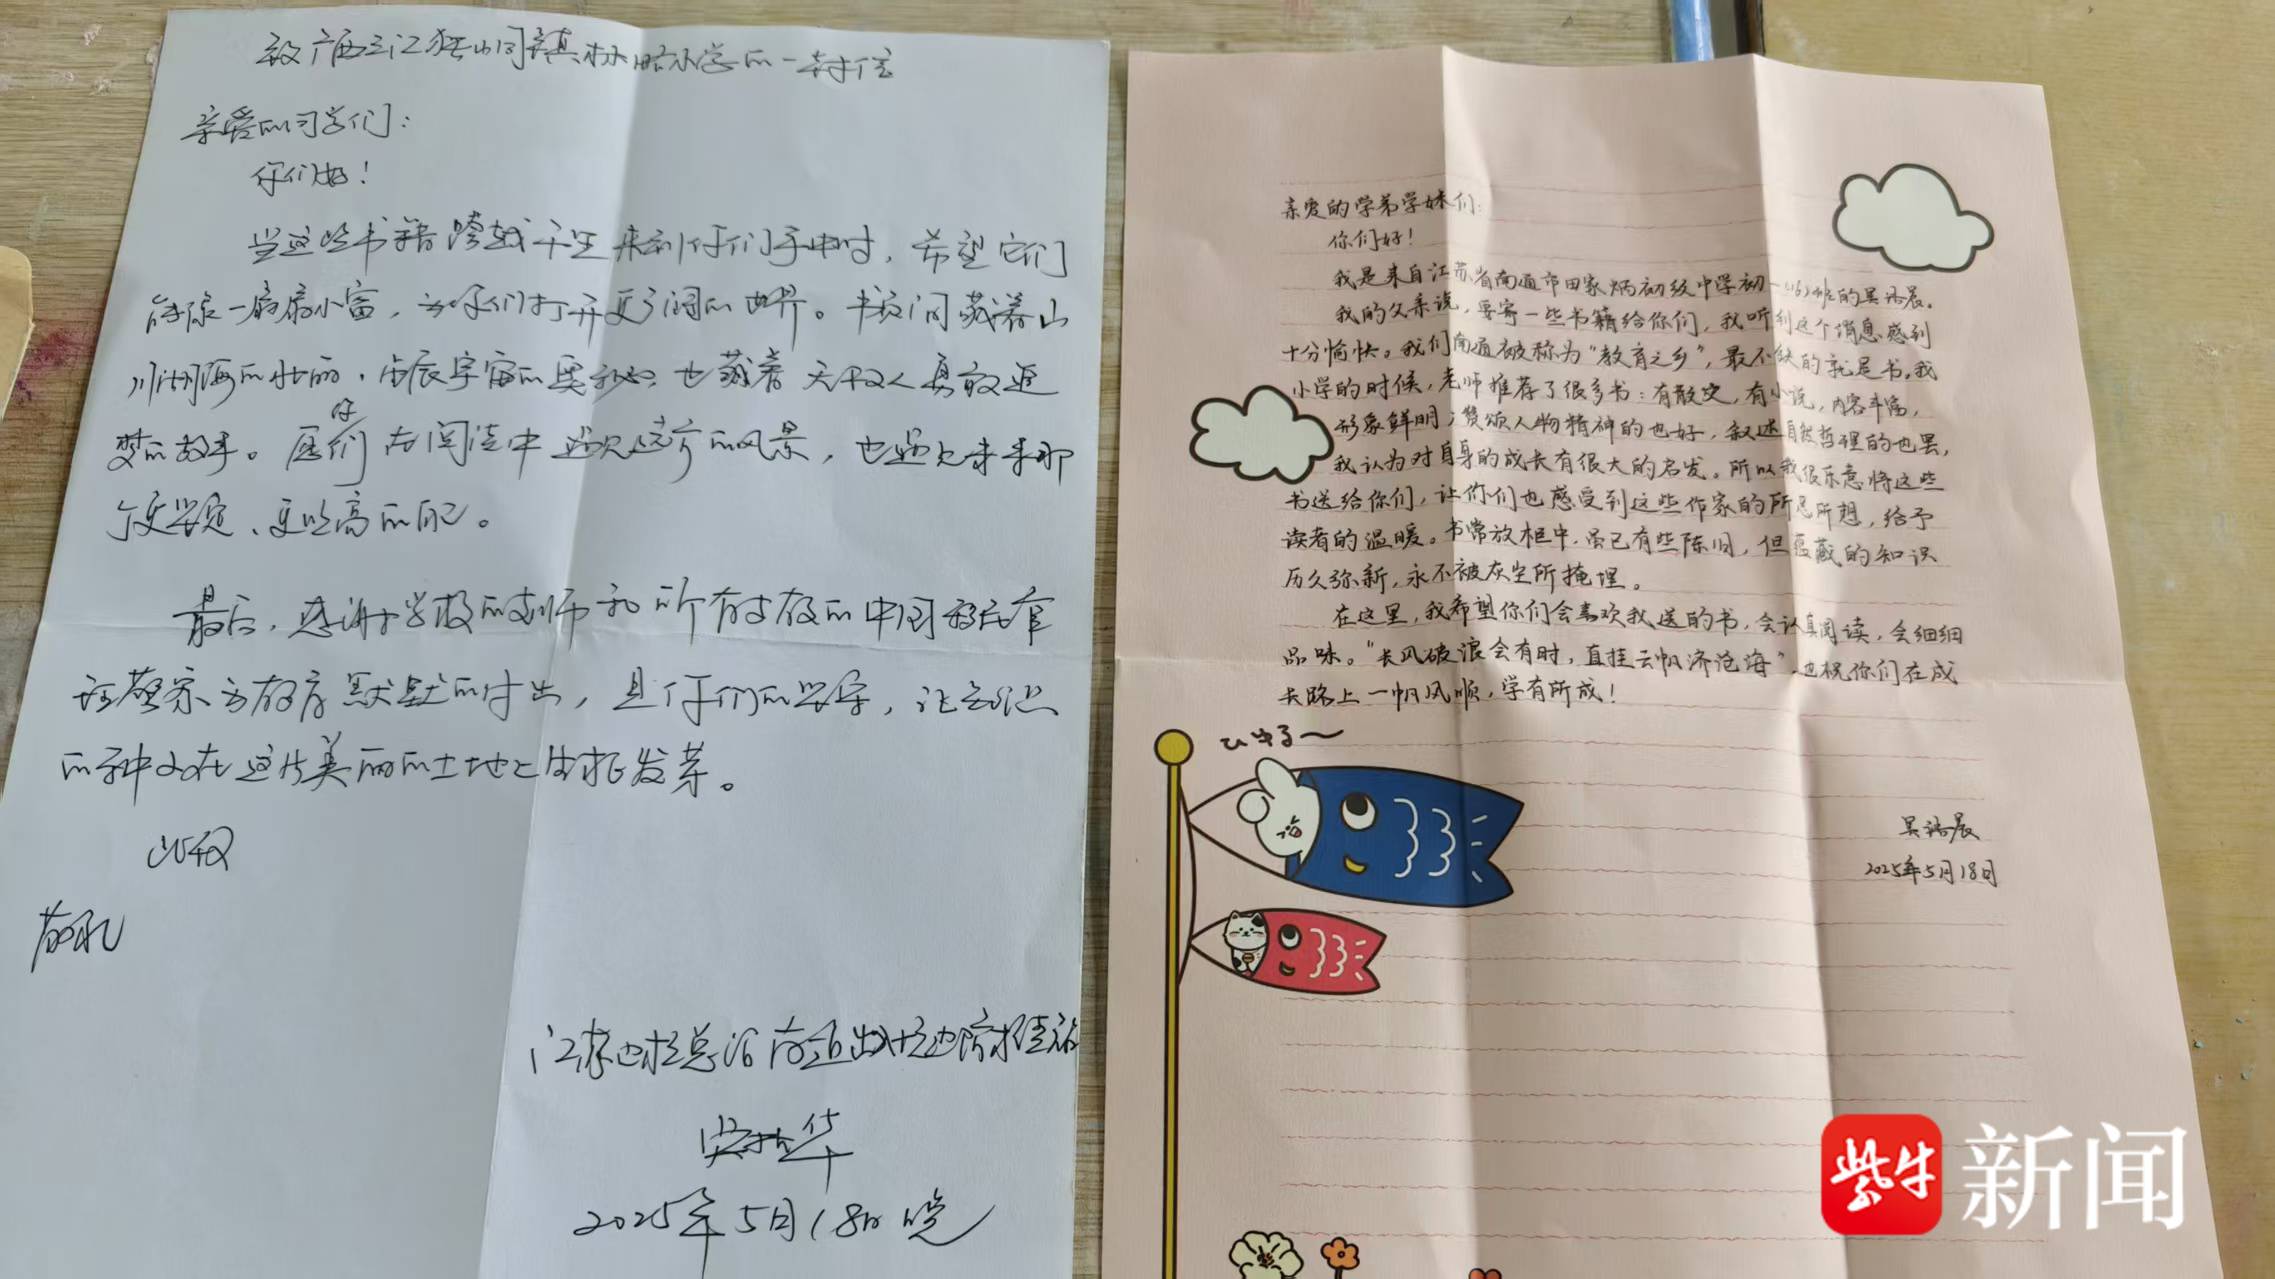 致广西三江独峒镇林略小学的一封信
亲爱的同学们：
你们好！
当这些书籍跨越千里来到你们手中时，希望它们
能像一扇扇小窗，为你们打开更广阔的世界。书页间藏着山
川湖海的壮丽，星辰宇宙的奥秘，也藏着无数人勇敢追
梦的故事。愿你们在阅读中遇见远方的风景，也遇见未来那
个更坚定、更崇高的自己。
最后，感谢学校的老师和所有支教的中国移民管
理警察为教育默默的付出，是你们的坚守，让知识
的种子在这片美丽的土地上生根发芽。
此致
敬礼
江苏边检总站南通出入境边防检查站
华
2025年5月18日晚
亲爱的学弟学妹们：
你们好！
我是来自江苏省南通市田家炳初级中学初一(6)班的吴语晨。
我的父亲说，要寄一些书籍给你们，我听到这个消息感到
十分愉快。我们南通被称为“教育之乡”，最不缺的就是书。我
小学的时候，老师推荐了很多书：有散文，有小说，内容丰富，
形象鲜明；赞颂人物精神的也好，叙述自然哲理的也罢，
我认为对自身的成长有很大的启发。所以我很乐意将这些
书送给你们，让你们也感受到这些作家的所思所想，给予
读者的温暖。书常放柜中，虽已有些陈旧，但蕴藏的知识
历久弥新，永不被灰尘所掩埋。
在这里，我希望你们会喜欢我送的书，会认真阅读，会细细
品味。“长风破浪会有时，直挂云帆济沧海”，也祝你们在成
长路上一帆风顺，学有所成！
吴语晨
2025年5月18日
紫牛新闻